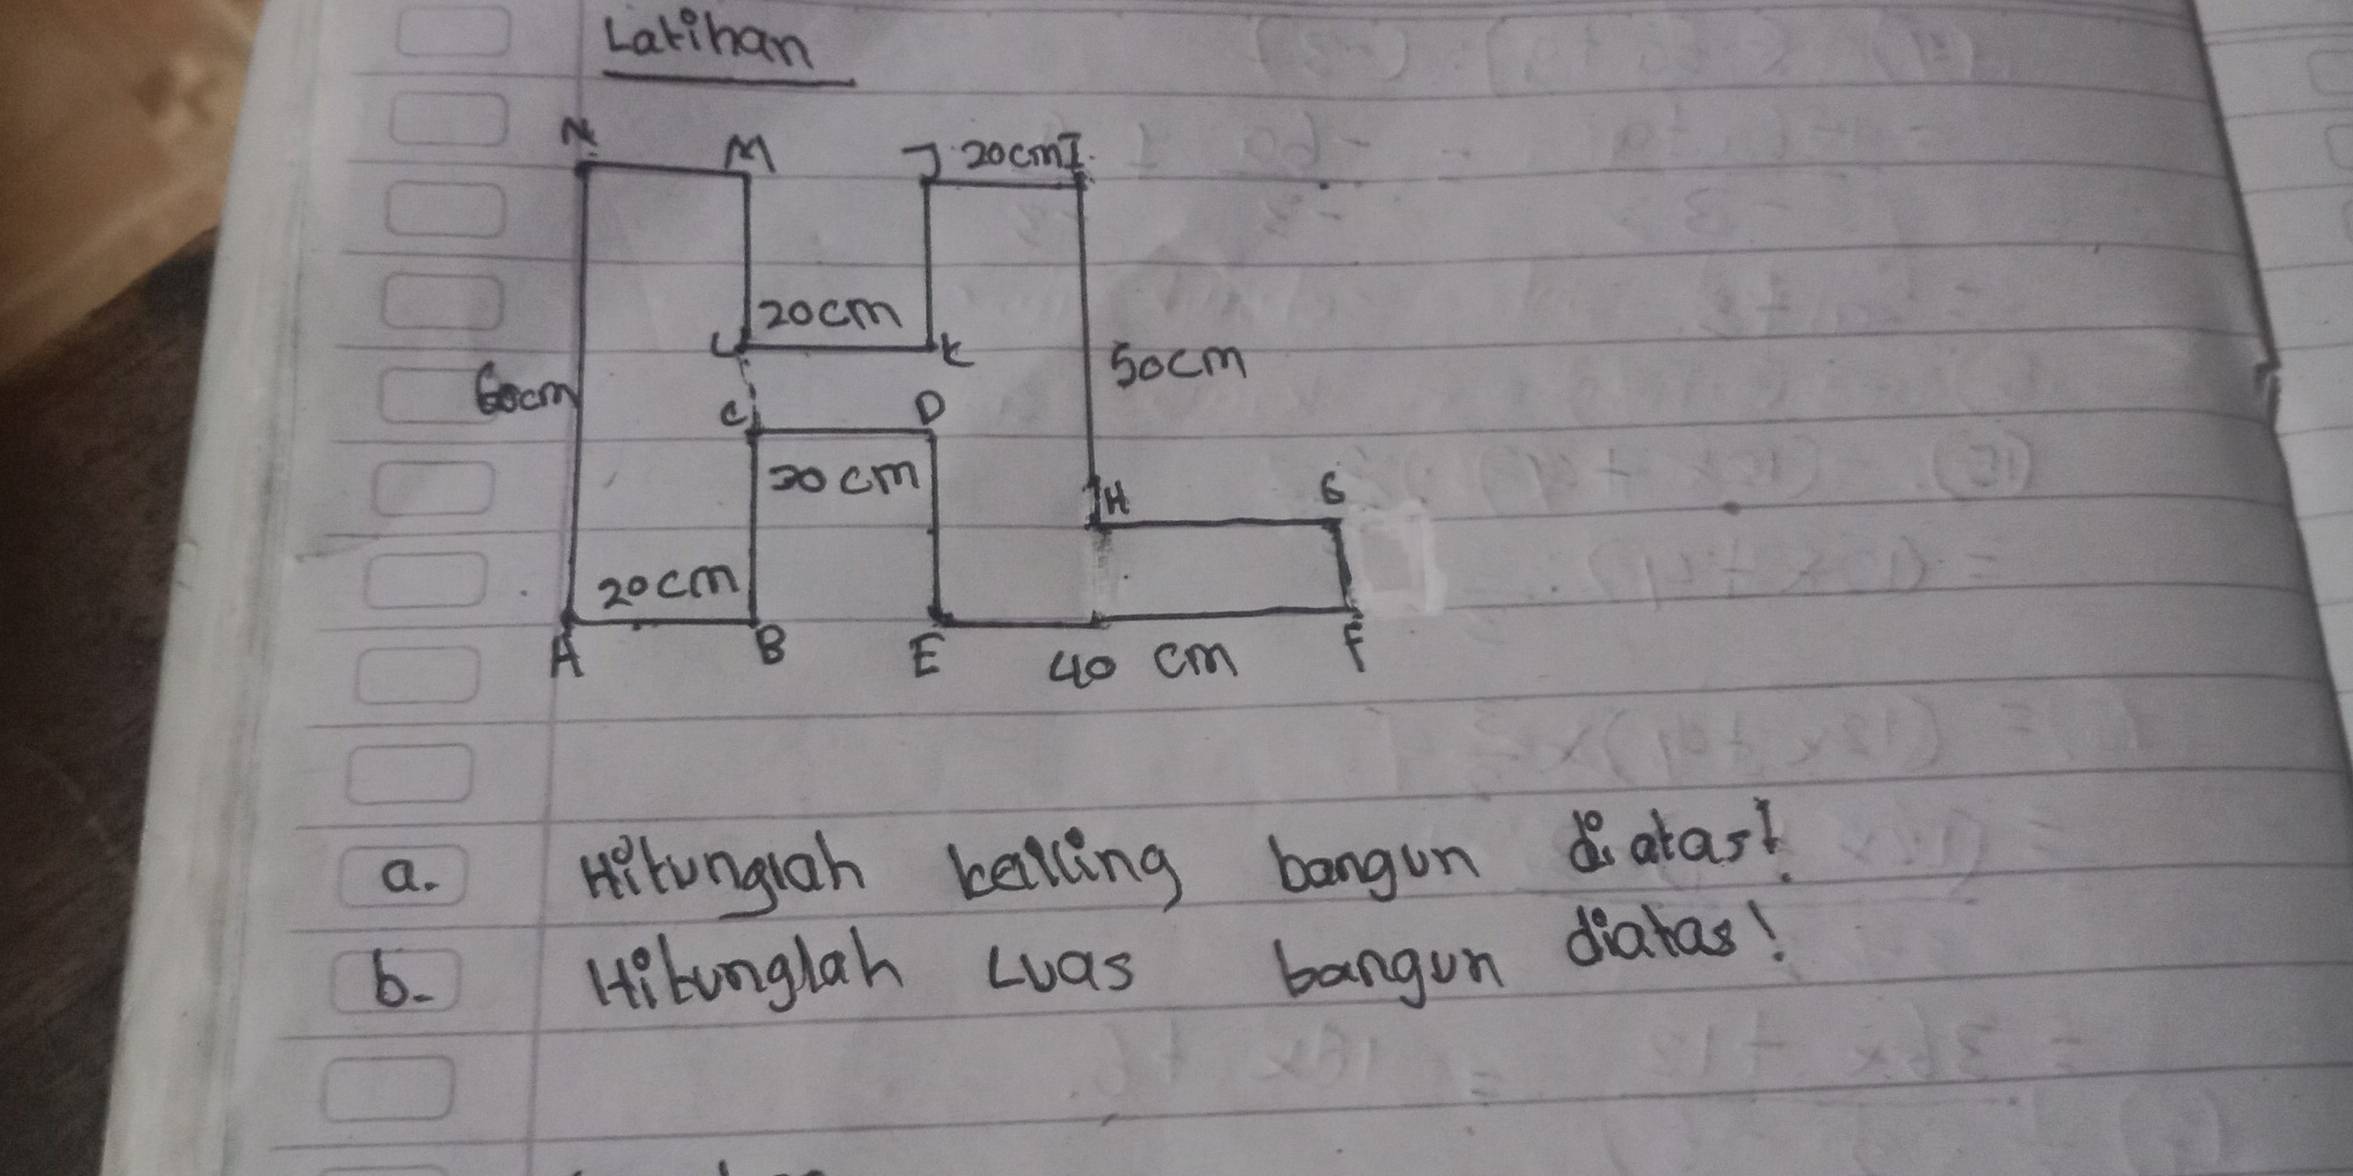 Latihan
N M J 20cm I
20cm
L K
60cm 50cm
C D
20 cm
H G
20cm
A B E 40 cm F
a. Hitunglah keliling bangun diatas!
b. Hitunglah Luas bangun diatas!